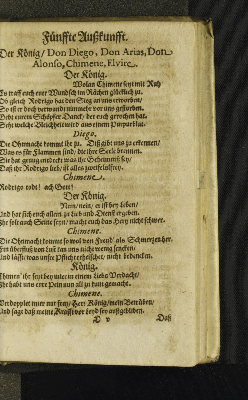 Fünffte Außkunfft.
Der König / Don Diego, Don Arias, Don
Alonso, Chimene, Elvire.
Der König.
Wolan Chimene seyt mit Ruh
Es trifft euch eurer Wundsch im Rächen glücklich zu.
Ob gleich Rodrigo hat den Sieg an uns erworben /
So ist er doch verwundt nunmehr vor uns gestorben.
Gebt eurem Schöpfer Danck / der euch gerochen hat.
Seht welche Bleichheit wird aus einem Purpurblat.
Diego.
Die Ohnmacht kommt ihr zu. Diß gibt uns zu erkennen /
Was es für Flammen sind / die ihre Seele brennen.
Sie hat genug entdeckt was ihr Geheimnüß sey /
Daß ihr Rodrigo lieb / ist alles zweifelsfrey.
Chimene.
Rodrigo todt! ach Gott!
Der König.
Nein / nein / er ist bey leben /
Und hat sich euch allein zu lieb und Dienst ergeben.
Ihr solt auch Seine seyn / macht euch das Herz nicht schwer.
Chimene.
Die Ohnmacht kommt so wol von Freud' als Schmerzen her.
Ein überfluß von Lust kan uns nicht wenig kräncken /
Und lässt was unsre Pflicht erheischet / nicht bedencken.
König.
Chimen' ihr seyt bey mir in einem Liebs Verdacht /
Ihr habt uns eure Pein nun all zu kunt gemacht.
Chimene.
Verdoppelt mier nur frey / Herr König / mein Betrüben /
Und sagt daß meine
D v
Daß